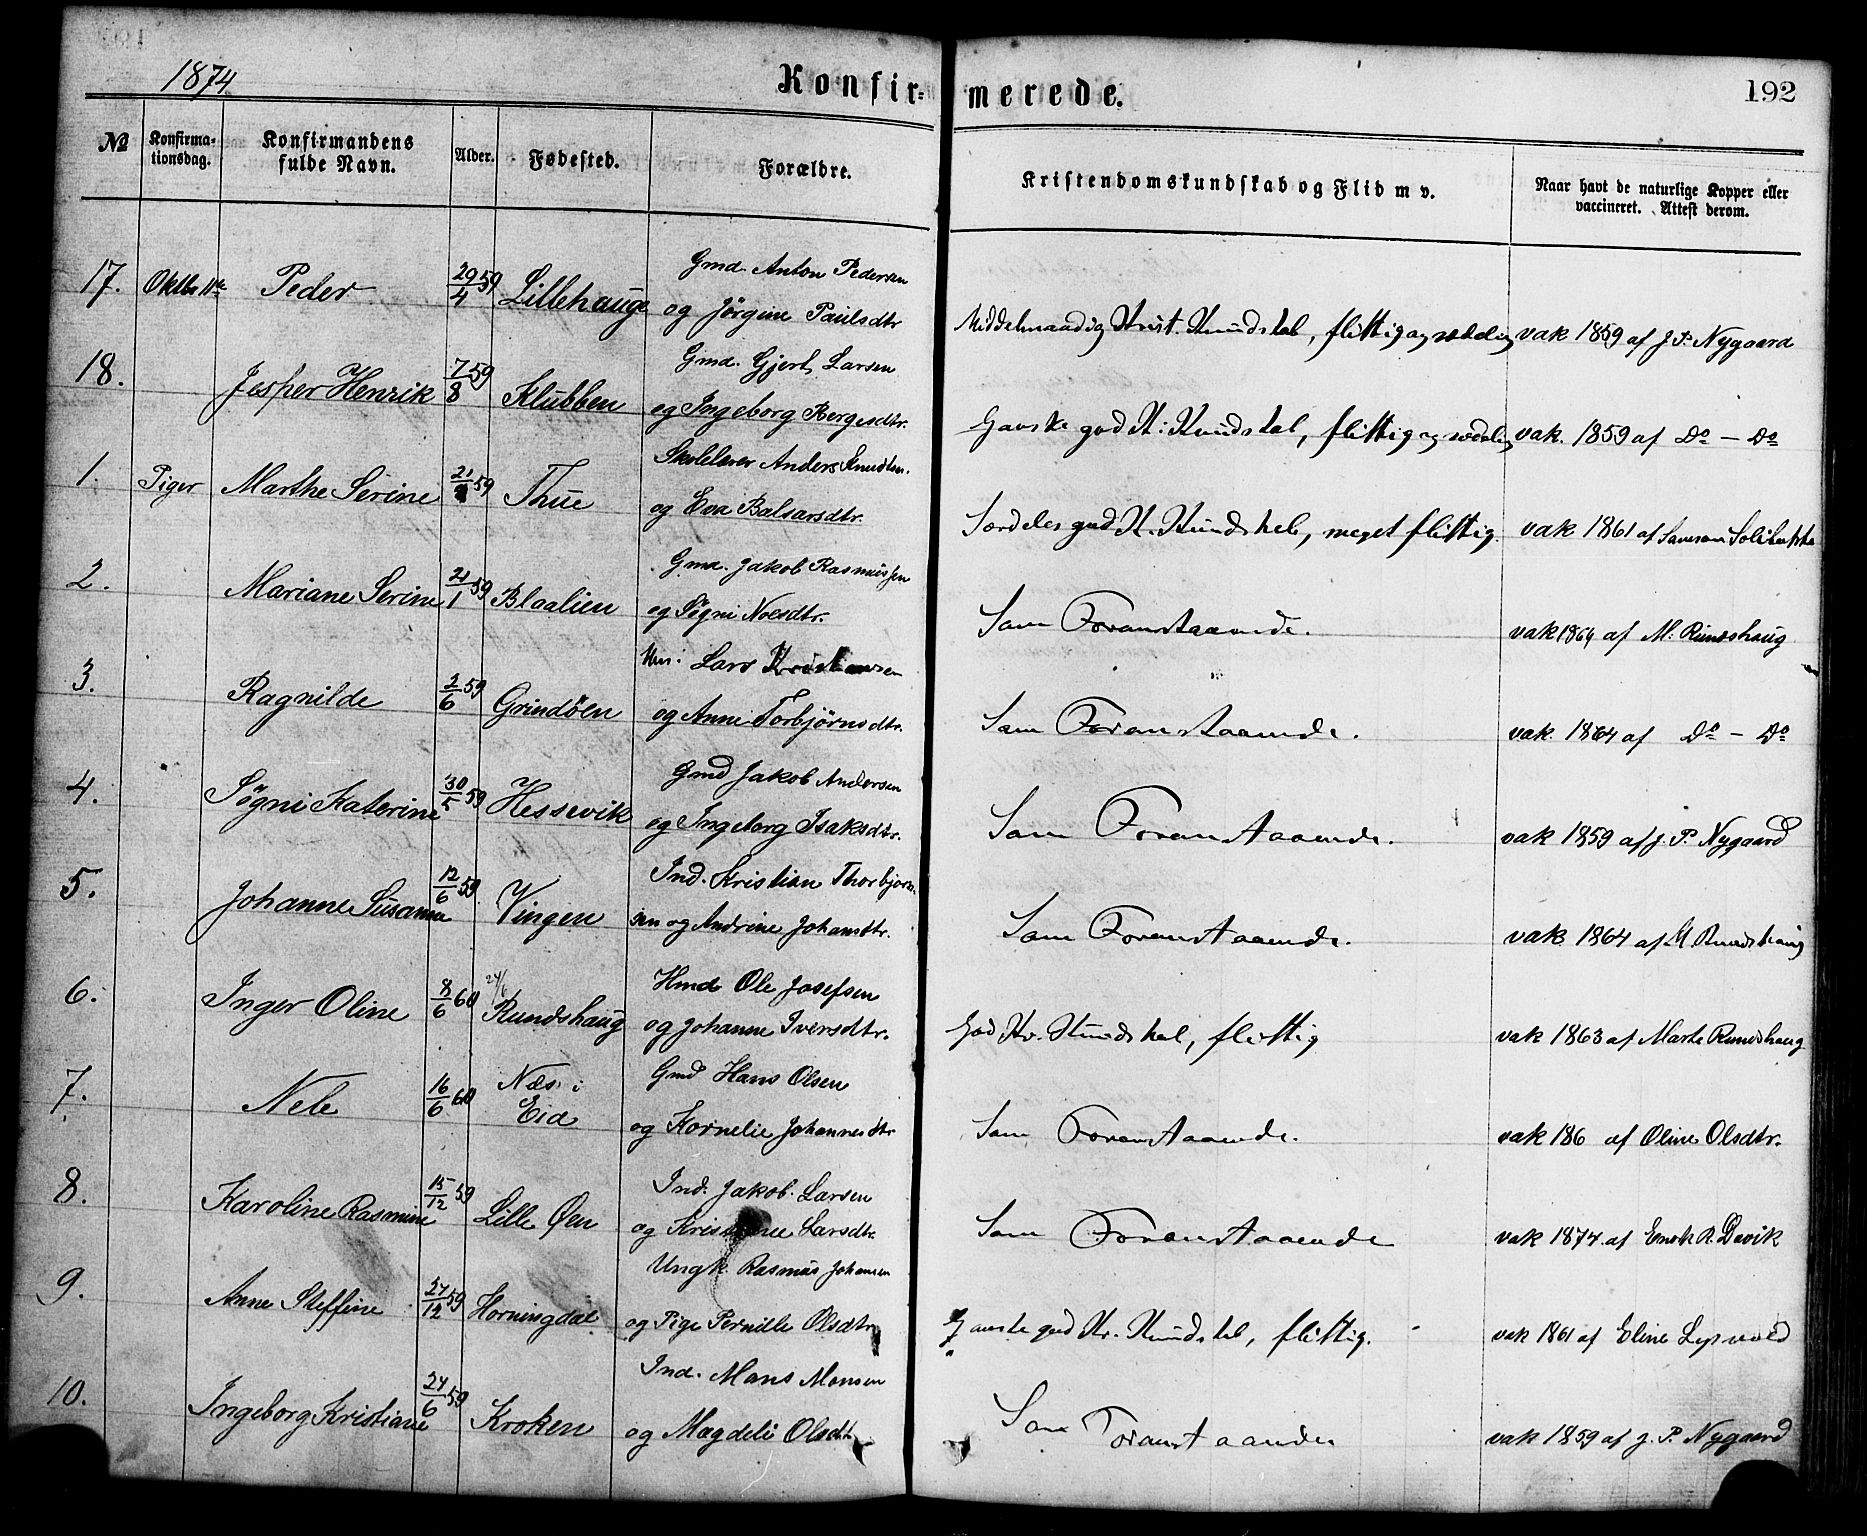 1874
Konfir-
merede.
192
№
Konfirma-
tionsdag.
Konfirmandens
fulde Navn.
Alder.
Fødested.
Forældre.
Kristendomskundskab og Flid m v.
Naar havt de naturlige Kopper eller
vaccineret. Attest derom.
17. Oktbr 11te Peder 29/4 59 Lillehauge
Gmd. Anton Pedersen
og Jørgine Paulsdtr
Middelmaadig Krist. Kundskab, flittig og sædelig vak 1859 af J. P. Nygaard
18. Jesper Henrik 7/8 59 Klubben
Gmd. Gjert Larsen
og Ingeborg Børgesdtr.
Ganske god K: Kundskab, flittig og sædelig vak. 1859 af Do - Do
1. Piger Marthe Serine 21/ 59 Thue
Skolelærer Anders Knudtsen.
og Eva Balsarsdtr.
Særdeles god K. Kundskab, meget flittig. vak 1861 af Samson
2. Mariane Serine 21/1 59 Blaalien
Gmd. Jakob Rasmussen
og Søgni Noesdtr.
Som Foranstaaende. vak 1864 af M: Rundshaug
3. Ragnilde 2/6 59 Grindøen
Hus: Lars Kristiansen
og Anne Torbjørnsdtr.
Som Foranstaaende. vak. 1864 af Do - Do
4. Søgni Katerine 30/5 59 Hessevik
Gmd Jakob Andersen
og Ingeborg Isaksdtr.
Som Foranstaaende. vak 1859 af J. P. Nygaard
5. Johanne Susanna 12/6 59 Vingen
Ind. Kristian Thorbjørn-
sen og Andrine Johansdtr.
Som Foranstaaende. vak 1864 af M. Rundshaug
6. Inger Oline 8/6 60 24/6 Rundshaug
Hmd Ole Josefsen
og Johanne Iversdtr.
God Kr. Kundskab, flittig vak 1863 af Marte Rundshaug
7. Nele 16/6 60 Næs i
Eid
Gmd Hans Olsen
og Kornelie Johannesdtr
Som Foranstaaende. vak 186 af Oline Olsdtr.
8. Karoline Rasmine 15/12 59 Lille Øen
Ind. Jakob Larsen
og Larsdtr.
Som Foranstaaende vak 1874 af Enok R. Davik
9. Anne Steffine 27/12 59 Horningdal
Ungk. Rasmus Johansen
og Pige Pernille Olsdtr
Ganske god Kr. Kundskab, flittig. vak 1861 af Eline
10. Ingeborg Kristiane 24/6 59 Kroken
Ind. Mons Monsen
og Magdeli Olsdtr
Som Foranstaaende vak 1859 af J. P. Nygaard